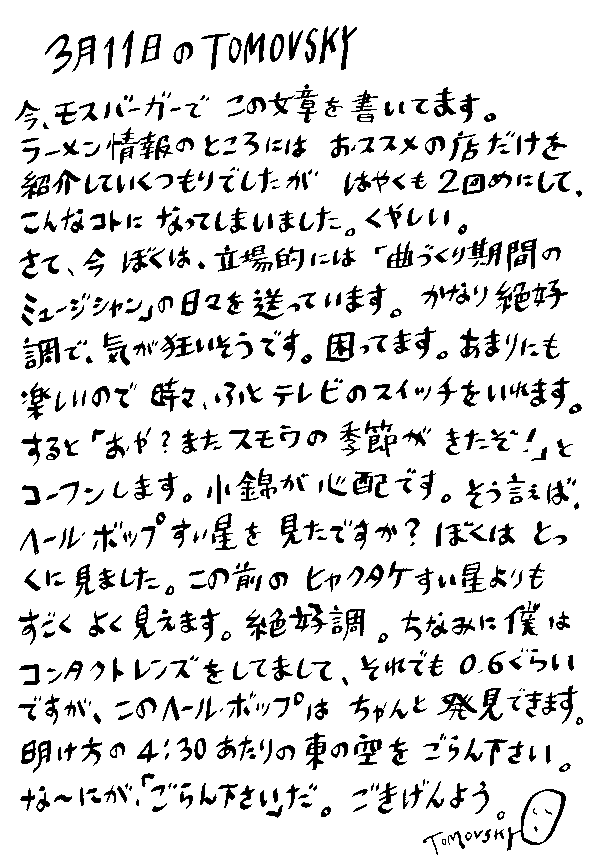 3月11日のTOMOVSKY
今、モスバーガーで この文章を書いてます。
ラーメン情報のところには おススメの店だけを
紹介していくつもりでしたが はやくも2回めにして、
こんなコトに なってしまいました。くやしい。
さて、今 ぼくは、立場的には「曲づくり期間の
ミュージシャン」の日々を送っています。かなり絶好
調で、気が狂いそうです。困ってます。あまりにも
楽しいので 時々、ふと テレビのスイッチをいれます。
すると「おや?またスモウの季節が きたぞ!」と
コーフンします。小錦が心配です。そう言えば、
ヘールボップすい星を 見たですか?ぼくは とっ
くに見ました。この前の ヒャクタケすい星よりも
すごく よく見えます。絶好調。ちなみに僕は
コンタクトレンズをしてまして、それでも 0.6ぐらい
ですが、このヘールボップは ちゃんと発見できます。
明け方の4:30あたりの東の空を ごらん下さい。
な〜にが、「ごらん下さい」だ。ごきげんよう。
TOMOVSKY